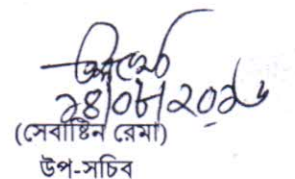 ২৪/০৮/২০১৬
(সেবাষ্টিন রেমা)
উপ-সচিব